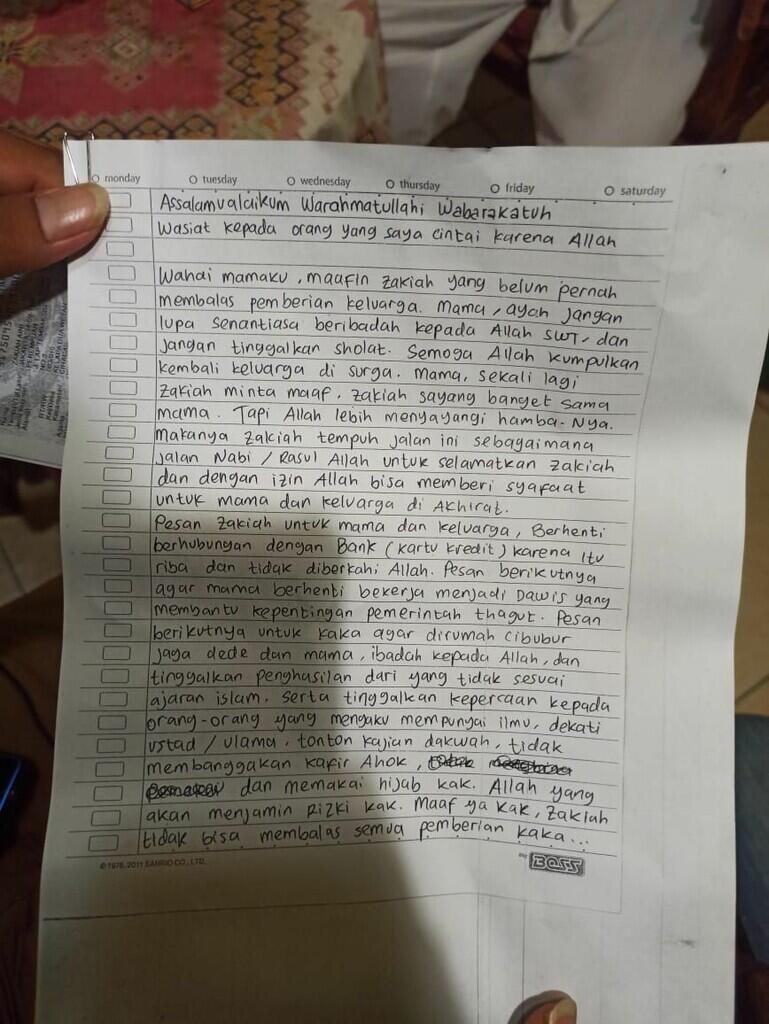 monday tuesday wednesday thursday friday saturday
Assalamualaikum Warahmatullahi Wabarakatuh
Wasiat kepada orang yang saya cintai karena Allah
Wahai mamaku, maafin zakiah yang belum pernah
membalas pemberian keluarga. Mama, ayah jangan
lupa senantiasa beribadah kepada Allah SWT, dan
jangan tinggalkan sholat. Semoga Allah kumpulkan
kembali keluarga di surga. Mama, sekali lagi
zakiah minta maaf. zakiah sayang banget sama
mama. Tapi Allah lebih menyayangi hamba-Nya.
Makanya zakiah tempuh jalan ini sebagaimana
jalan Nabi / Rasul Allah untuk selamatkan zakiah
dan dengan izin Allah bisa memberi syafaat
untuk mama dan keluarga di Akhirat.
Pesan zakiah untuk mama dan keluarga, Berhenti
berhubungan dengan Bank (kartu kredit) karena itu
riba dan tidak diberkahi Allah. Pesan berikutnya
agar mama berhenti bekerja menjadi Dawis yang
membantu kepentingan pemerintah thagut. Pesan
berikutnya untuk kaka agar dirumah cibubur
jaga dede dan mama, ibadah kepada Allah, dan
tinggalkan penghasilan dari yang tidak sesuai
ajaran islam. serta tinggalkan kepercaan kepada
orang-orang yang mengaku mempunyai ilmu, dekati
ustad / ulama, tonton kajian dakwah, tidak
membanggakan kafir Ahok,
dan memakai hijab kak. Allah yang
akan menjamin Rizki kak. Maaf ya kak, zakiah
tidak bisa membalas semua pemberian kaka...
© 1976, 2011 SANRIO CO., LTD.
by BOSS